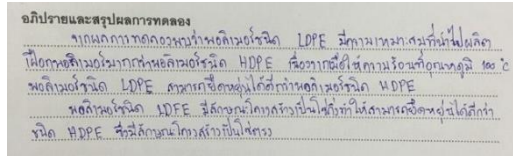 อภิปรายและสรุปผลการทดลอง
จากผลการทดลองพบว่าพอลิเมอร์ชนิด LDPE มีความเหมาะสมที่นำไปผลิต
เฝือกพอลิเมอร์มากกว่าพอลิเมอร์ชนิด HDPE เนื่องจากเมื่อให้ความร้อนที่อุณหภูมิ 100 °C
พอลิเมอร์ชนิด LDPE สามารถยืดหยุ่นได้ดีกว่าพอลิเมอร์ชนิด HDPE
พอลิเมอร์ชนิด LDPE มีลักษณะโครงสร้างเป็นโซ่กิ่งทำให้สามารถยืดหยุ่นได้ดีกว่า
ชนิด HDPE ซึ่งมีลักษณะโครงสร้างเป็นโซ่ตรง